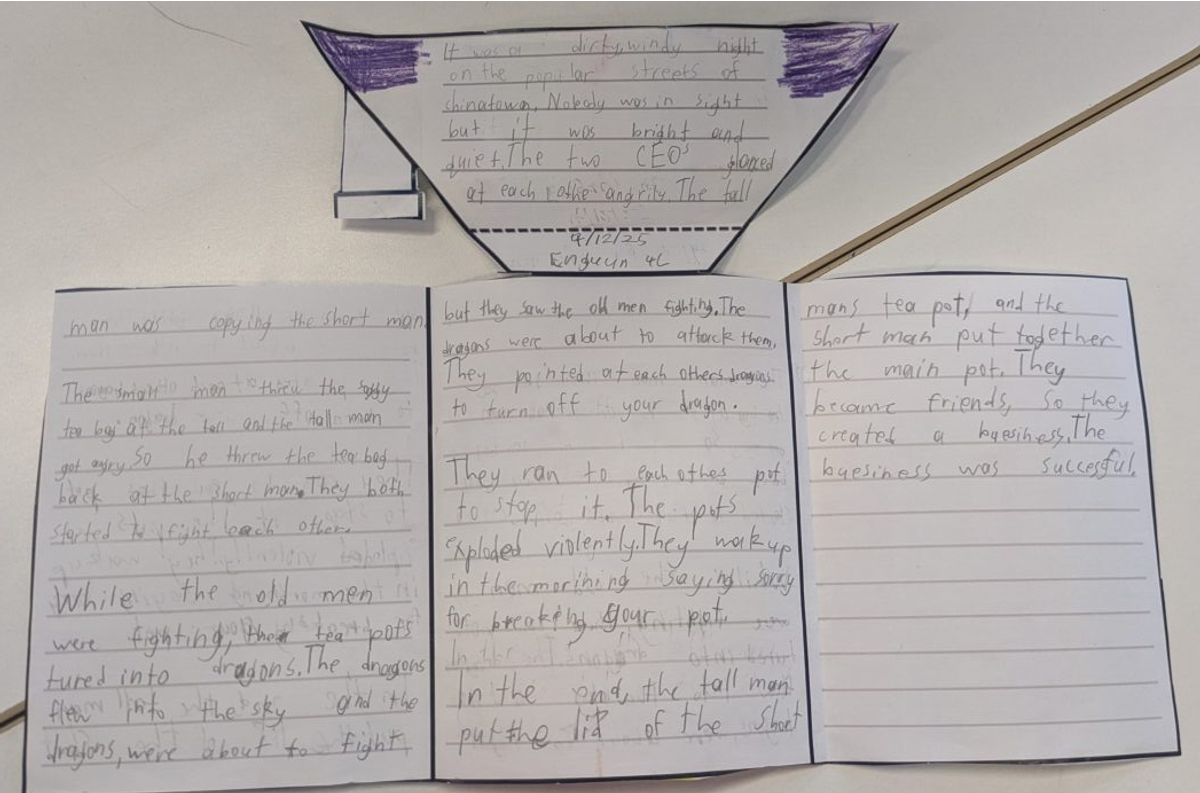 It was a dirty, windy night
on the popular streets of
chinatown. Nobody was in sight
but it was bright and
quiet. The two CEO's glared
at each other angrily. The tall
9/12/25
4L
man was copying the short man.
The small man threw the soggy
tea bag at the tall and the tall man
got angry. So he threw the tea bag
back at the short man. They both
started to fight each other.
While the old men
were fighting, the tea pots
tured into dragons. The dragons
flew into the sky and the
dragons, were about to fight
but they saw the old men fighting. The
dragons were about to attack them.
They pointed at each others dragons
to turn off your dragon.
They ran to each other pot
to stop it. The pots
exploded violently. They wak up
in the morining saying sorry
for breaking your pot.
In the
In the end, the tall man
put the lid of the short
mans tea pot, and the
short man put together
the main pot. They
became friends, so they
created a buesiness. The
buesiness was succesful.